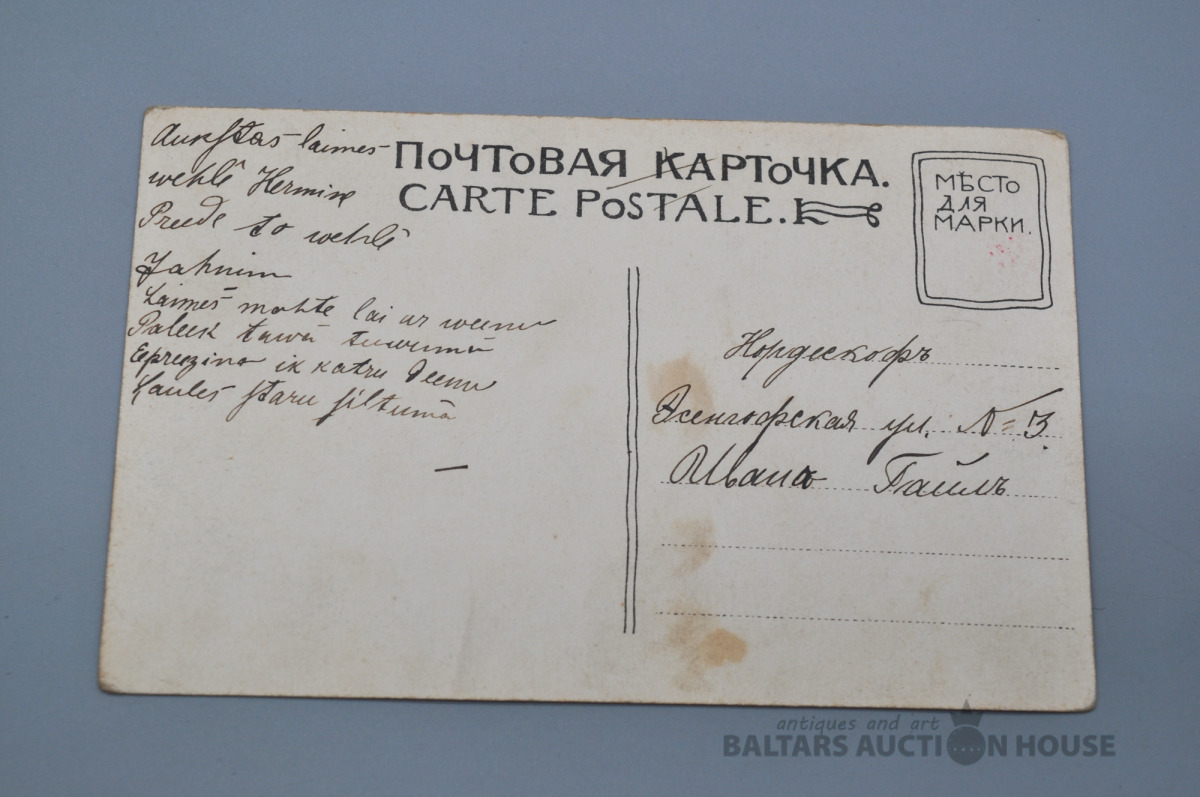 Aukstas laimes
wehlē Hermine
Preede to wehlē
Jahnim
Laimes mahte lai ar weenu
Paleek tawā tuwumā
Eepreezina ik katru deenu
Saules staru siltumā
ПОЧТОВАЯ КАРТОЧКА.
CARTE POSTALE.
МѢСТО
ДЛЯ
МАРКИ.
Нордескофъ
Эсенгофская ул. № 3
Ивана Гайлъ
antiques and art
BALTARS AUCTION HOUSE